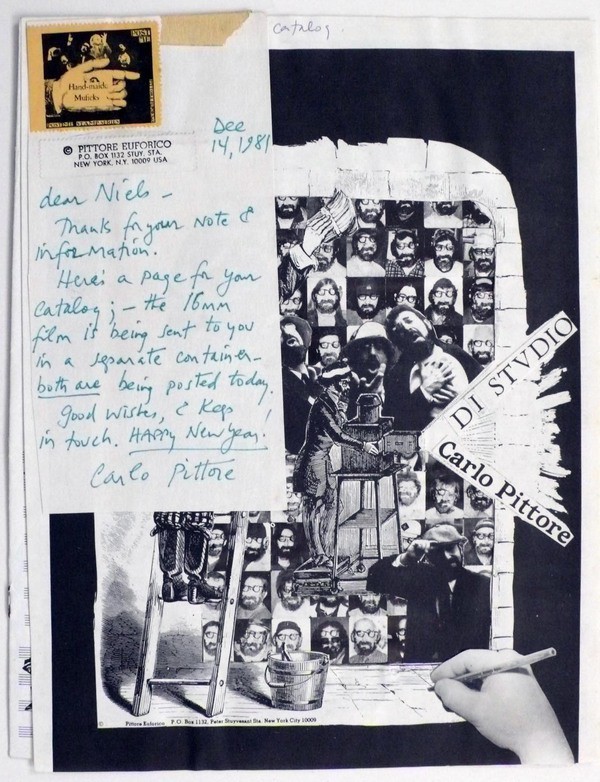 catalog.
POST
ME
Hand-made
Muficks
POST-ME STAMP SERIES
© PITTORE EUFORICO
P.O. BOX 1132 STUY. STA.
NEW YORK, N.Y. 10009 USA
Dec
14, 1981
dear Niels —
Thanks for your note &
information.
Here's a page for your
catalog; — the 16mm
film is being sent to you
in a separate container—
both are being posted today.
Good wishes, & keep
in touch. HAPPY New Year!
Carlo Pittore
DI STVDIO
Carlo Pittore
© Pittore Euforico P.O. Box 1132, Peter Stuyvesant Sta. New York City 10009